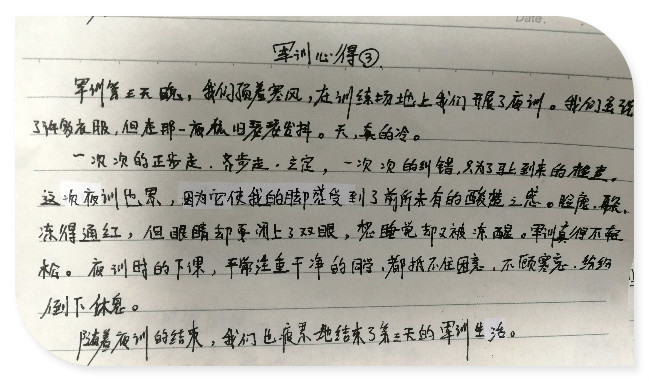 Date.
军训心得③
军训第三天晚，我们顶着寒风，在训练场地上我们开展了夜训。我们虽说
了许多衣服，但在那一夜依旧瑟瑟发抖。天，真的冷。
一次次的正步走．齐步走．立定，一次次的纠错，只为了马上到来的检查。
这次夜训也累，因为它使我的脚感受到了前所未有的酸楚之感。脸庞、
冻得通红，但眼睛却要闭上了双眼，想睡觉却又被冻醒。军训真但不轻
松。夜训时的下课，平常注重干净的同学，都抵不住困意，不顾寒意．纷纷
倒下休息。
随着夜训的结束，我们也疲累地结束了第三天的军训生活。